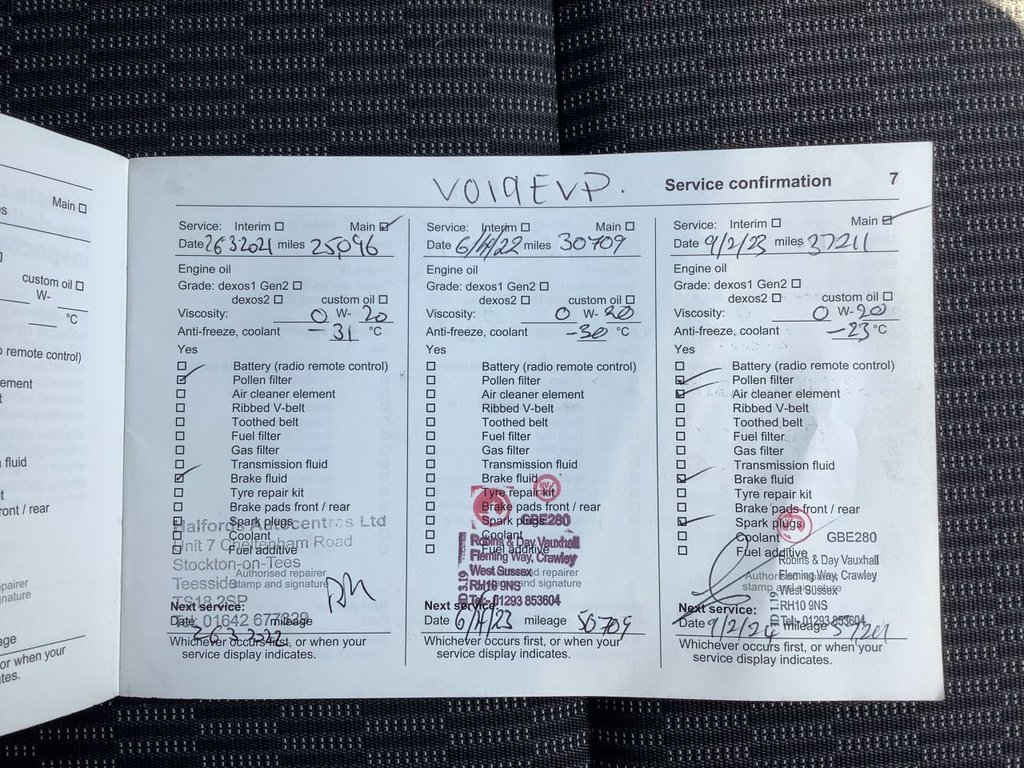 Main
s
custom oil
W-
°C
o remote control)
ement
t
fluid
t
ront / rear
epairer
nature
age
or when your
tes.
VO19EVP.
Service confirmation
7
Service: Interim Main
Date 26 3 2021 miles 25,096
Engine oil
Grade: dexos1 Gen2
dexos2 custom oil
Viscosity: 0 W- 20
Anti-freeze, coolant -31 °C
Yes
Battery (radio remote control)
Pollen filter
Air cleaner element
Ribbed V-belt
Toothed belt
Fuel filter
Gas filter
Transmission fluid
Brake fluid
Tyre repair kit
Brake pads front / rear
Spark plugs
Coolant
Fuel additive
Halfords Autocentres Ltd
Unit 7 Cheltenham Road
Stockton-on-Tees
Teesside
TS18 2SP
Tel: 01642 677339
Authorised repairer
stamp and signature
Next service:
Date mileage
Whichever occurs first, or when your
service display indicates.
Service: Interim Main
Date 6/4/22 miles 30709
Engine oil
Grade: dexos1 Gen2
dexos2 custom oil
Viscosity: 0 W- 20
Anti-freeze, coolant -30 °C
Yes
Battery (radio remote control)
Pollen filter
Air cleaner element
Ribbed V-belt
Toothed belt
Fuel filter
Gas filter
Transmission fluid
Brake fluid
Tyre repair kit
Brake pads front / rear
Spark plugs
Coolant
Fuel additive
GBE280
Robins & Day Vauxhall
Fleming Way, Crawley
West Sussex
RH10 9NS
Tel: 01293 853604
repairer
and signature
Next service:
Date 6/4/23 mileage 50709
Whichever occurs first, or when your
service display indicates.
Service: Interim Main
Date 9/2/23 miles 37211
Engine oil
Grade: dexos1 Gen2
dexos2 custom oil
Viscosity: 0 W- 20
Anti-freeze, coolant -23 °C
Yes
Battery (radio remote control)
Pollen filter
Air cleaner element
Ribbed V-belt
Toothed belt
Fuel filter
Gas filter
Transmission fluid
Brake fluid
Tyre repair kit
Brake pads front / rear
Spark plugs
Coolant
Fuel additive
GBE280
Robins & Day Vauxhall
Fleming Way, Crawley
West Sussex
RH10 9NS
Tel: 01293 853604
Next service:
Date 9/2/24 mileage
Whichever occurs first, or when your
service display indicates.